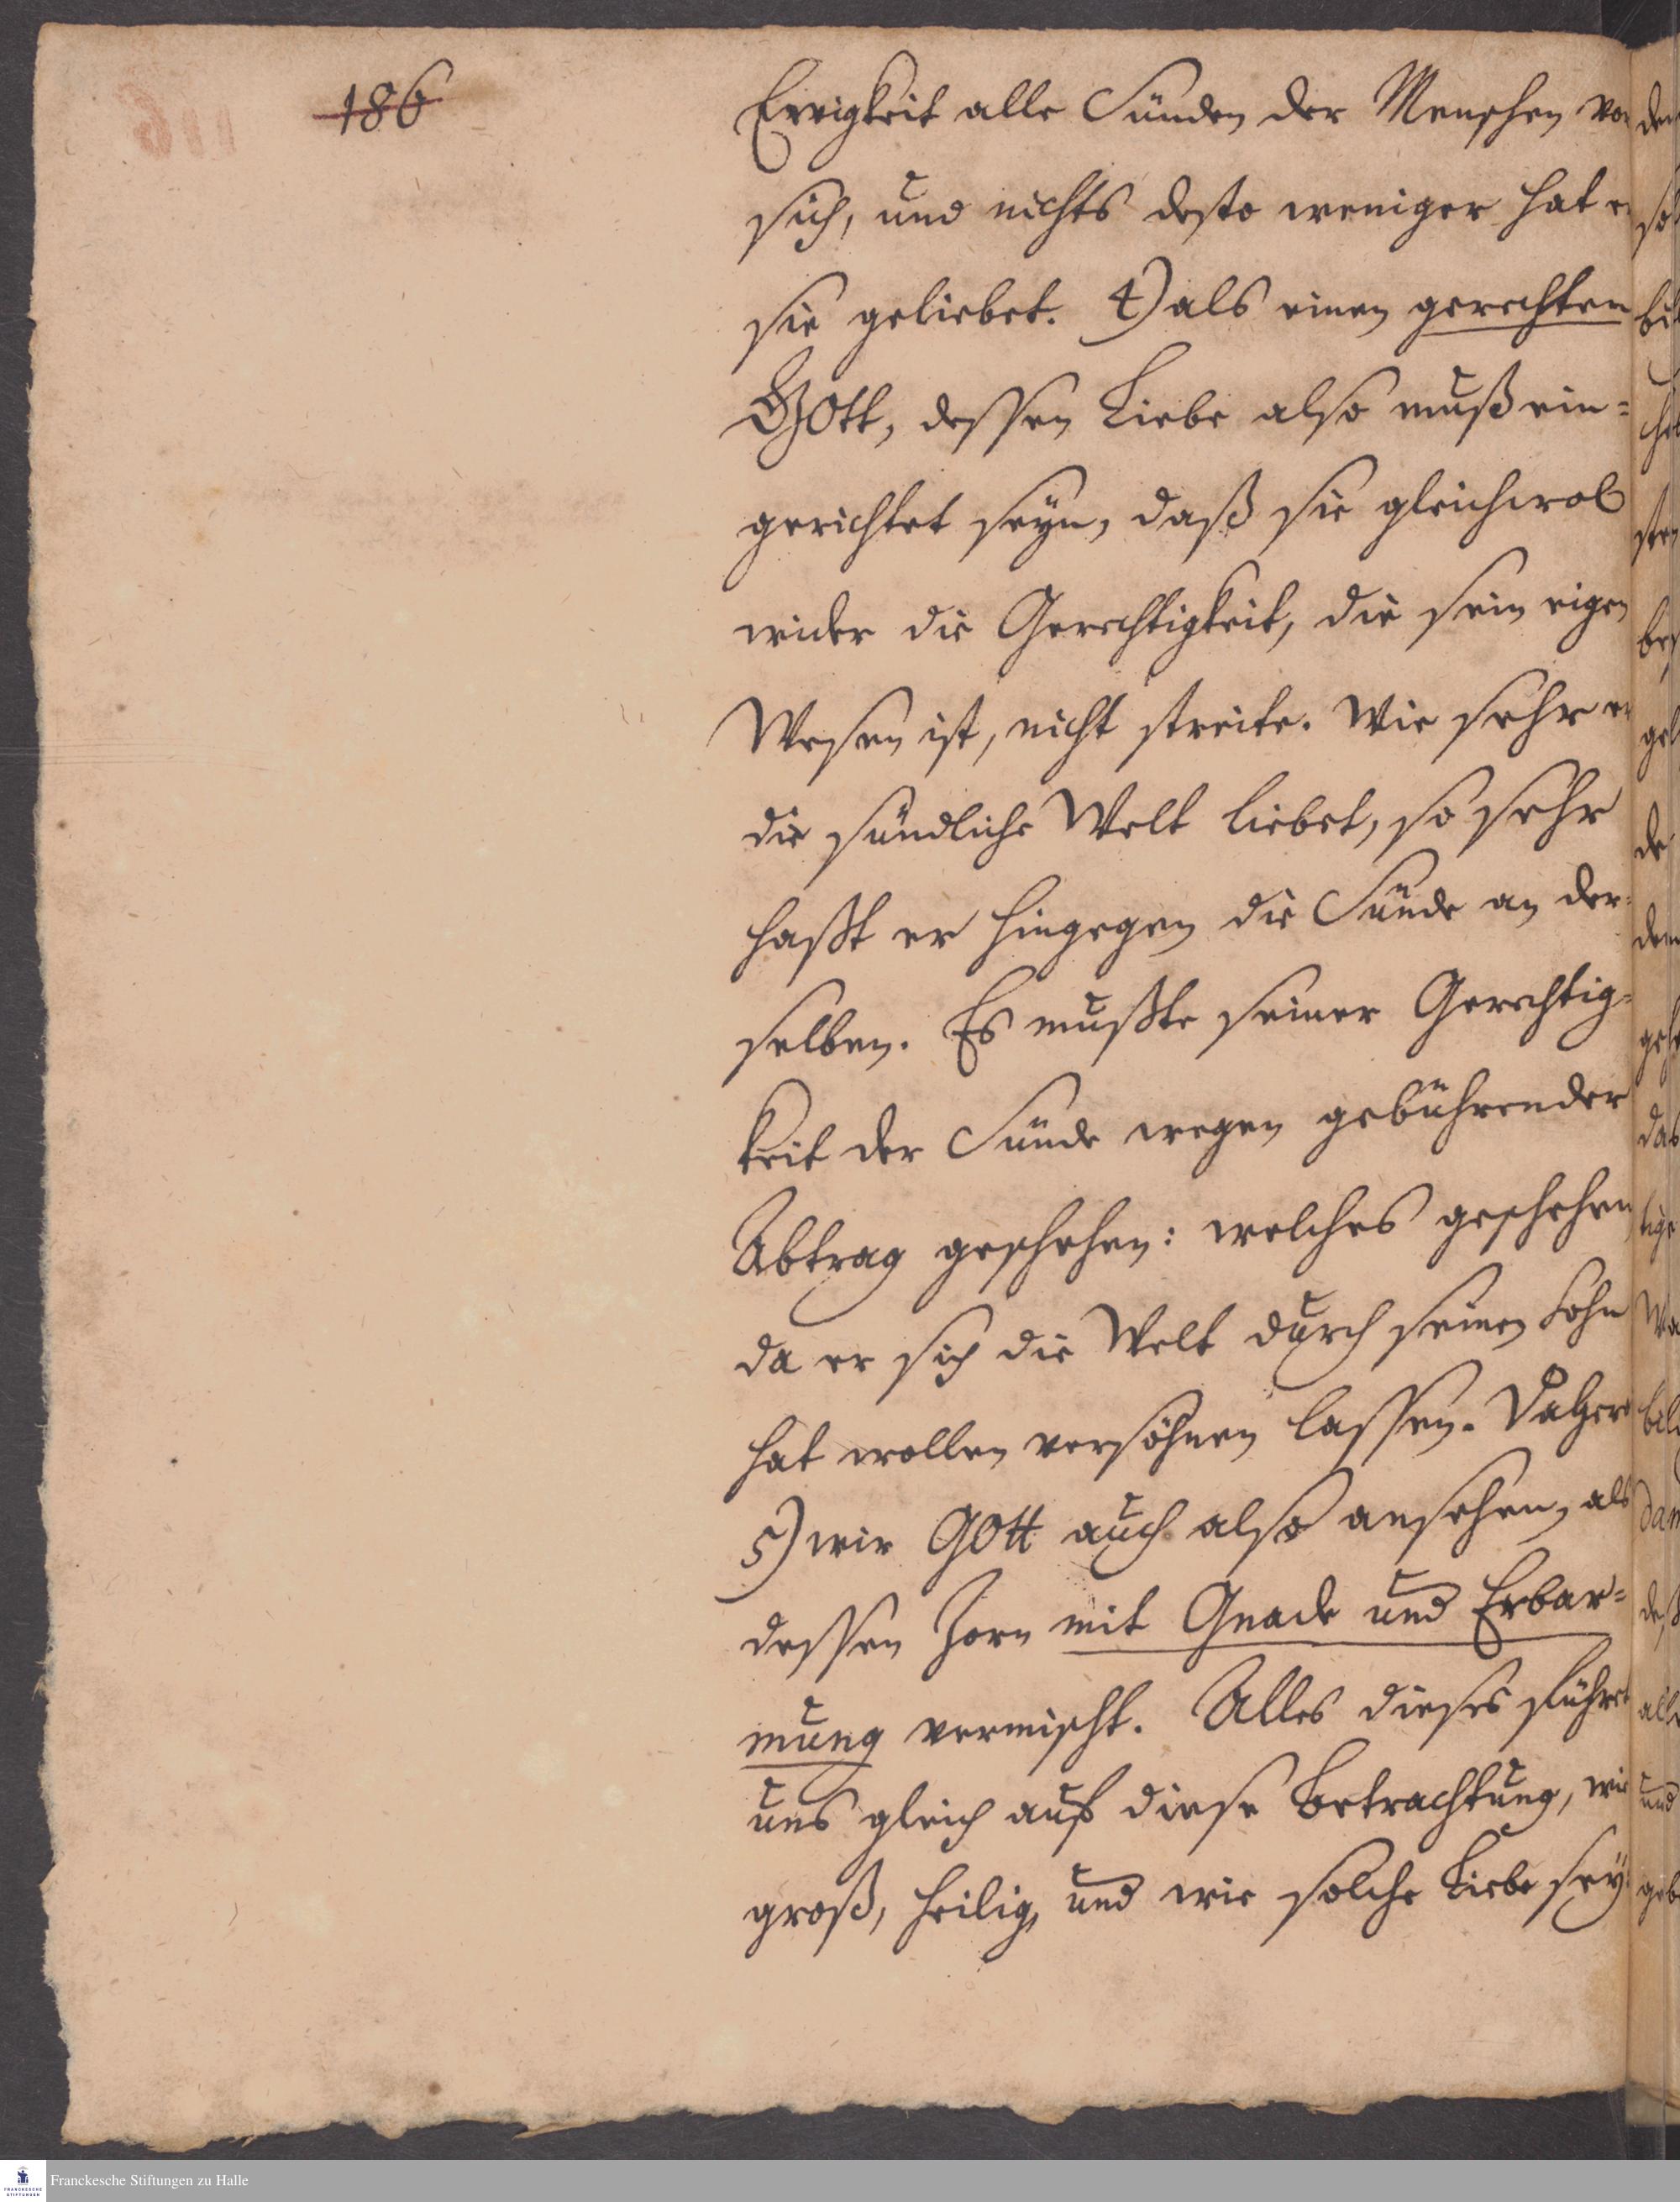 186
Ewigkeit alle Sünden der Menschen vor
sich, und nichts desto weniger hat er
sie geliebet. 4) als einen gerechten
GOtt, dessen Liebe also muß ein=
gerichtet seyn, daß sie gleichwol
wider die Gerechtigkeit, die sein eigen
Wesen ist, nicht streite. Wie sehr er
die sündliche Welt liebet, so sehr
haßt er hingegen die Sünde an der=
selben. Es mußte seiner Gerechtig=
keit der Sünde wegen gebührender
Abtrag geschehen: welches geschehen
da er sich die Welt durch seinen Sohn
hat wollen versöhnen lassen. Daher
5) wir GOtt auch also ansehen, als
dessen Zorn mit Gnade und Erbar=
mung vermischt. Alles dieses führet
uns gleich auf diese Betrachtung, wie
groß, heilig, und wie solche Liebe sey
Franckesche Stiftungen zu Halle